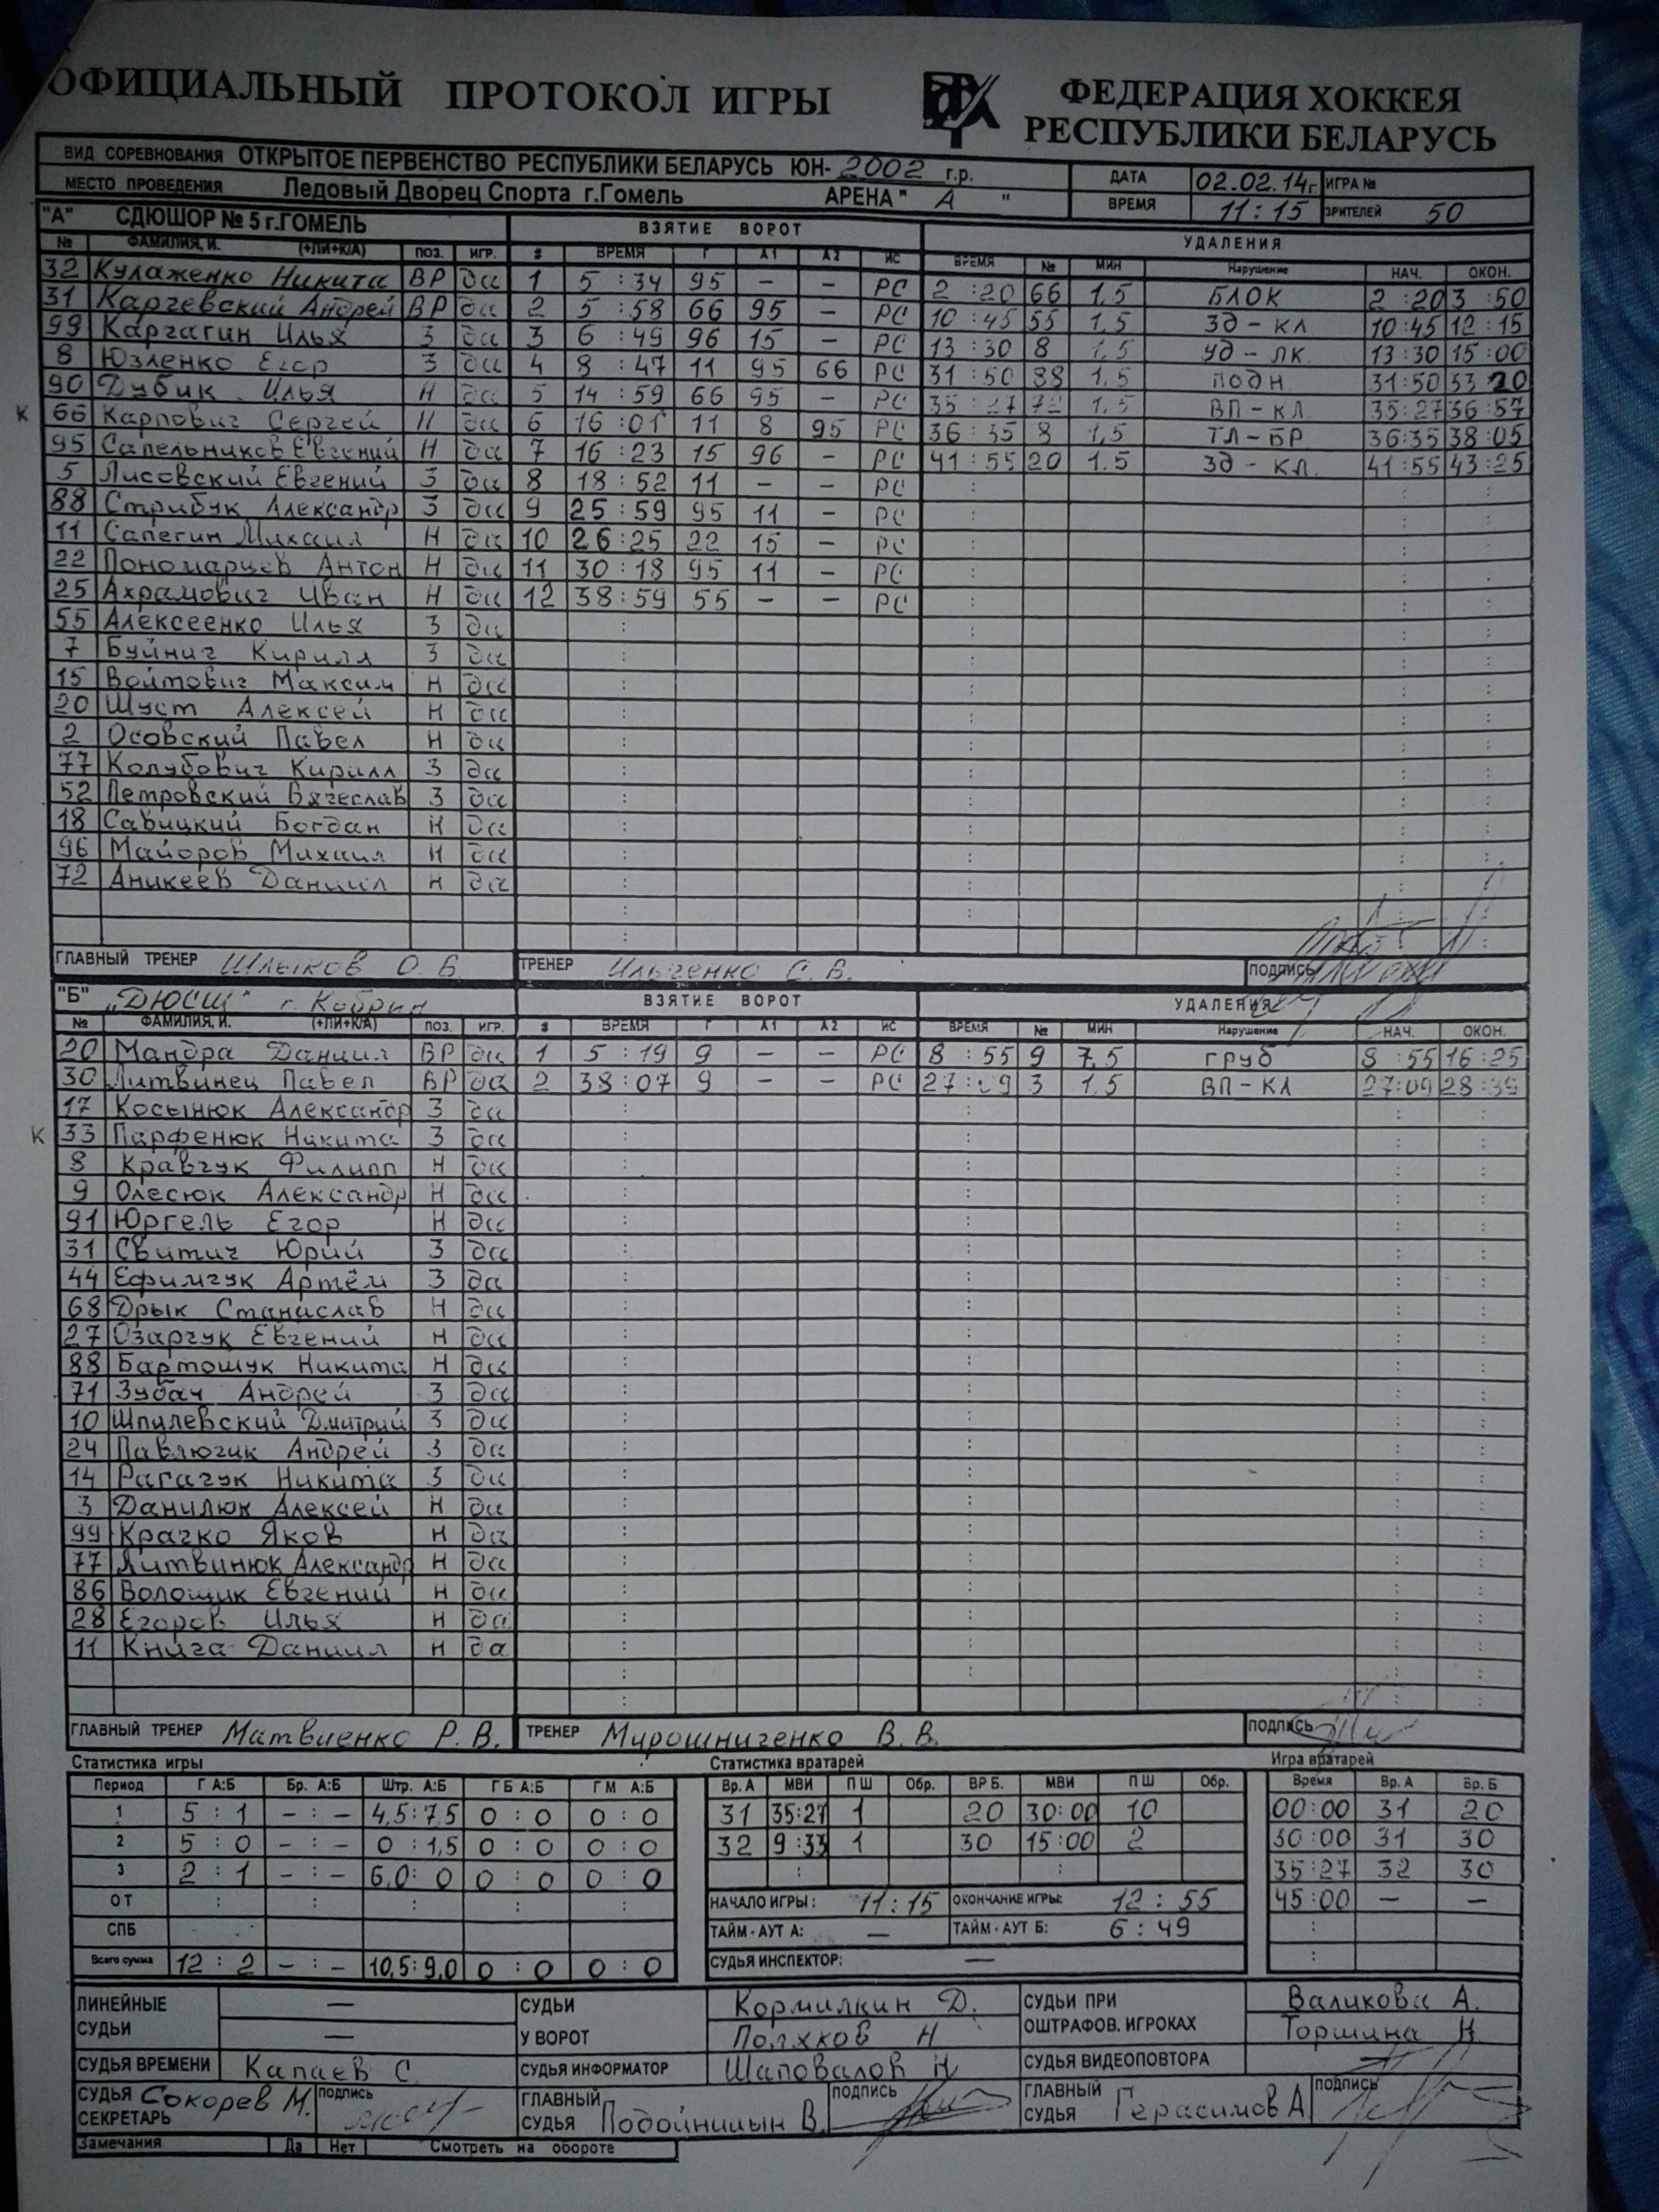 ОФИЦИАЛЬНЫЙ ПРОТОКОЛ ИГРЫ
ФЕДЕРАЦИЯ ХОККЕЯ
РЕСПУБЛИКИ БЕЛАРУСЬ
ВИД СОРЕВНОВАНИЯ ОТКРЫТОЕ ПЕРВЕНСТВО РЕСПУБЛИКИ БЕЛАРУСЬ ЮН- 2002 г.р. ДАТА 02.02.14г ИГРА №
МЕСТО ПРОВЕДЕНИЯ Ледовый Дворец Спорта г.Гомель АРЕНА " А " ВРЕМЯ 11:15 ЗРИТЕЛЕЙ 50
"А" СДЮШОР № 5 г.ГОМЕЛЬ ВЗЯТИЕ ВОРОТ УДАЛЕНИЯ
№ ФАМИЛИЯ, И. (+ЛИ+К/А) ПОЗ. ИГР. # ВРЕМЯ Г А1 А2 ИС ВРЕМЯ № МИН Нарушение НАЧ. ОКОН.
32 Кулаженко Никита ВР да 1 5:34 95 – – РС 2:20 66 1,5 БЛОК 2:20 3:50
31 Карчевский Андрей ВР да 2 5:58 66 95 – РС 10:45 55 1,5 ЗД-КЛ 10:45 12:15
99 Карчагин Илья З да 3 6:49 96 15 – РС 13:30 8 1,5 УД-ЛК 13:30 15:00
8 Юзленко Егор З да 4 8:47 11 95 66 РС 31:50 88 1,5 ПОДН 31:50 53 20
90 Дубик Илья Н да 5 14:59 66 95 – РС 35:27 72 1,5 ВП-КЛ 35:27 36:57
К 66 Карпович Сергей Н да 6 16:01 11 8 95 РС 36:35 8 1,5 ТЛ-БР 36:35 38:05
95 Сапельников Евгений Н да 7 16:23 15 96 – РС 41:55 20 1.5 ЗД-КЛ. 41:55 43:25
5 Лисовский Евгений З да 8 18:52 11 – – РС
88 Стрибук Александр З да 9 25:59 95 11 – РС
11 Сапегин Михаил Н да 10 26:25 22 15 – РС
22 Пономарцев Антон Н да 11 30:18 95 11 – РС
25 Ахрамович Иван Н да 12 38:59 55 – – РС
55 Алексеенко Илья З да
7 Буйнич Кирилл З да
15 Войтович Максим Н да
20 Шуст Алексей Н да
2 Осовский Павел Н да
77 Колубович Кирилл З да
52 Петровский Вячеслав З да
18 Савицкий Богдан Н да
96 Майоров Михаил Н да
72 Аникеев Даниил Н да
ГЛАВНЫЙ ТРЕНЕР Шлыков О. Б. ТРЕНЕР Ильченко С. В. ПОДПИСЬ
"Б" „ДЮСШ" г. Кобрин ВЗЯТИЕ ВОРОТ УДАЛЕНИЯ
№ ФАМИЛИЯ, И. (+ЛИ+К/А) ПОЗ. ИГР. # ВРЕМЯ Г А1 А2 ИС ВРЕМЯ № МИН Нарушение НАЧ. ОКОН.
20 Мандра Даниил ВР да 1 5:19 9 – – РС 8:55 9 7,5 ГРУБ 8:55 16:25
30 Литвинец Павел ВР да 2 38:07 9 – – РС 27:09 3 1.5 ВП-КЛ 27:09 28:39
17 Косынюк Александр З да
К 33 Парфенюк Никита З да
8 Кравчук Филипп Н да
9 Олесюк Александр Н да
91 Юргель Егор Н да
31 Свитич Юрий З да
44 Ефимчук Артём З да
68 Дрык Станислав Н да
27 Озарчук Евгений Н да
88 Бартошук Никита Н да
71 Зубач Андрей З да
10 Шпилевский Дмитрий З да
24 Павлючик Андрей З да
14 Рагачук Никита З да
3 Данилюк Алексей Н да
99 Крачко Яков Н да
77 Литвинюк Александр Н да
86 Волощик Евгений Н да
28 Егоров Илья Н да
11 Книга Даниил Н да
ГЛАВНЫЙ ТРЕНЕР Матвиенко Р. В. ТРЕНЕР Мирошниченко В. В. ПОДПИСЬ
Статистика игры Статистика вратарей Игра вратарей
Период Г А:Б Бр. А:Б Штр. А:Б Г Б А:Б Г М А:Б Вр. А МВИ П Ш Обр. ВР Б. МВИ П Ш Обр. Время Вр. А Вр. Б
1 5:1 –:– 4,5:7,5 0:0 0:0 31 35:27 1 20 30:00 10 00:00 31 20
2 5:0 –:– 0:1,5 0:0 0:0 32 9:33 1 30 15:00 2 30:00 31 30
3 2:1 –:– 6,0:0 0:0 0:0 35:27 32 30
ОТ НАЧАЛО ИГРЫ: 11:15 ОКОНЧАНИЕ ИГРЫ: 12:55 45:00 – –
СПБ ТАЙМ-АУТ А: – ТАЙМ-АУТ Б: 6:49
Всего сумма 12:2 –:– 10,5:9,0 0:0 0:0 СУДЬЯ ИНСПЕКТОР: –
ЛИНЕЙНЫЕ – СУДЬИ Кормилкин Д. СУДЬИ ПРИВаликова А.
СУДЬИ – У ВОРОТ Поляков Н ОШТРАФОВ. ИГРОКАХ Торшина Н.
СУДЬЯ ВРЕМЕНИ Капаев С. СУДЬЯ ИНФОРМАТОР Шаповалов Н СУДЬЯ ВИДЕОПОВТОРА –
СУДЬЯ Сокорев М. ПОДПИСЬ ГЛАВНЫЙ ПОДПИСЬ ГЛАВНЫЙ ПОДПИСЬ
СЕКРЕТАРЬ СУДЬЯ Подойницын В. СУДЬЯ Герасимов А
Замечания Да Нет Смотреть на обороте